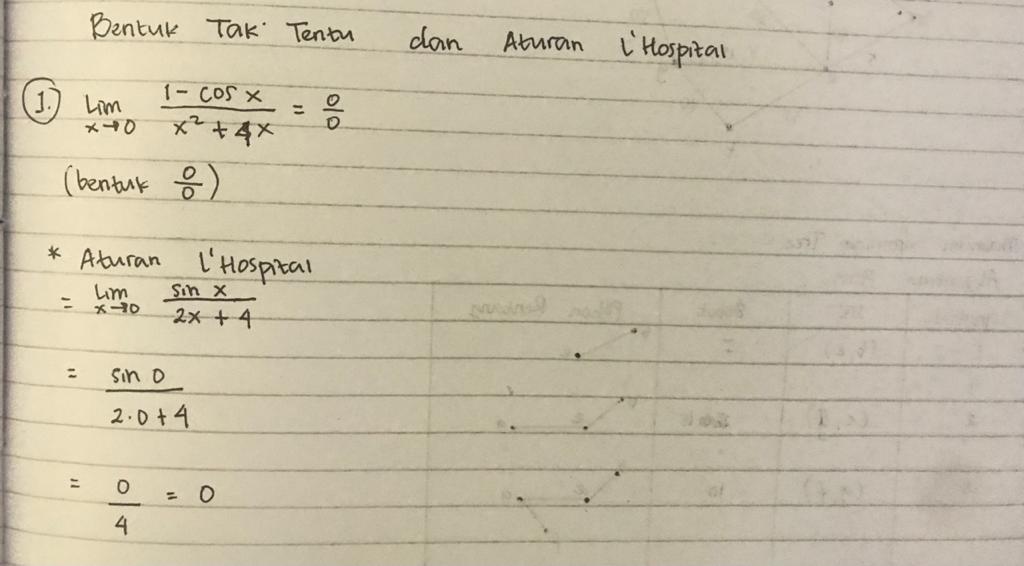 Bentuk Tak Tentu dan Aturan L'Hospital
1. Lim x→0 1 - cos x / x² + 4x = 0/0
(bentuk 0/0)
* Aturan L'Hospital
= Lim x→0 sin x / 2x + 4
= sin 0 / 2·0 + 4
= 0/4 = 0